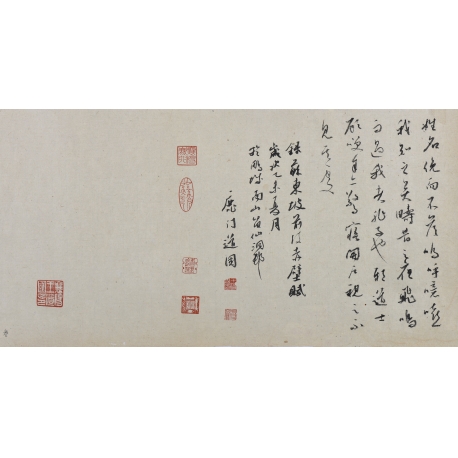 姓名俛而不答嗚呼噫嘻
我知之矣疇昔之夜飛鳴
而過我者非子也耶道士
顧笑予亦驚寤開戶視之不
見其處
錄蘇東坡前後赤壁賦
歲次乙未夏月
於鵬城南山
鹿門道